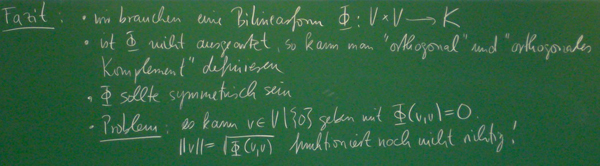 Fazit: • wir brauchen eine Bilinearform Φ: V × V → K
• ist Φ nicht ausgeartet, so kann man "orthogonal" und "orthogonales
Komplement" definieren
• Φ sollte symmetrisch sein
• Problem: es kann v ∈ V\{0} geben mit Φ(v,v)=0.
||v|| = √Φ(v,v) funktioniert noch nicht richtig!